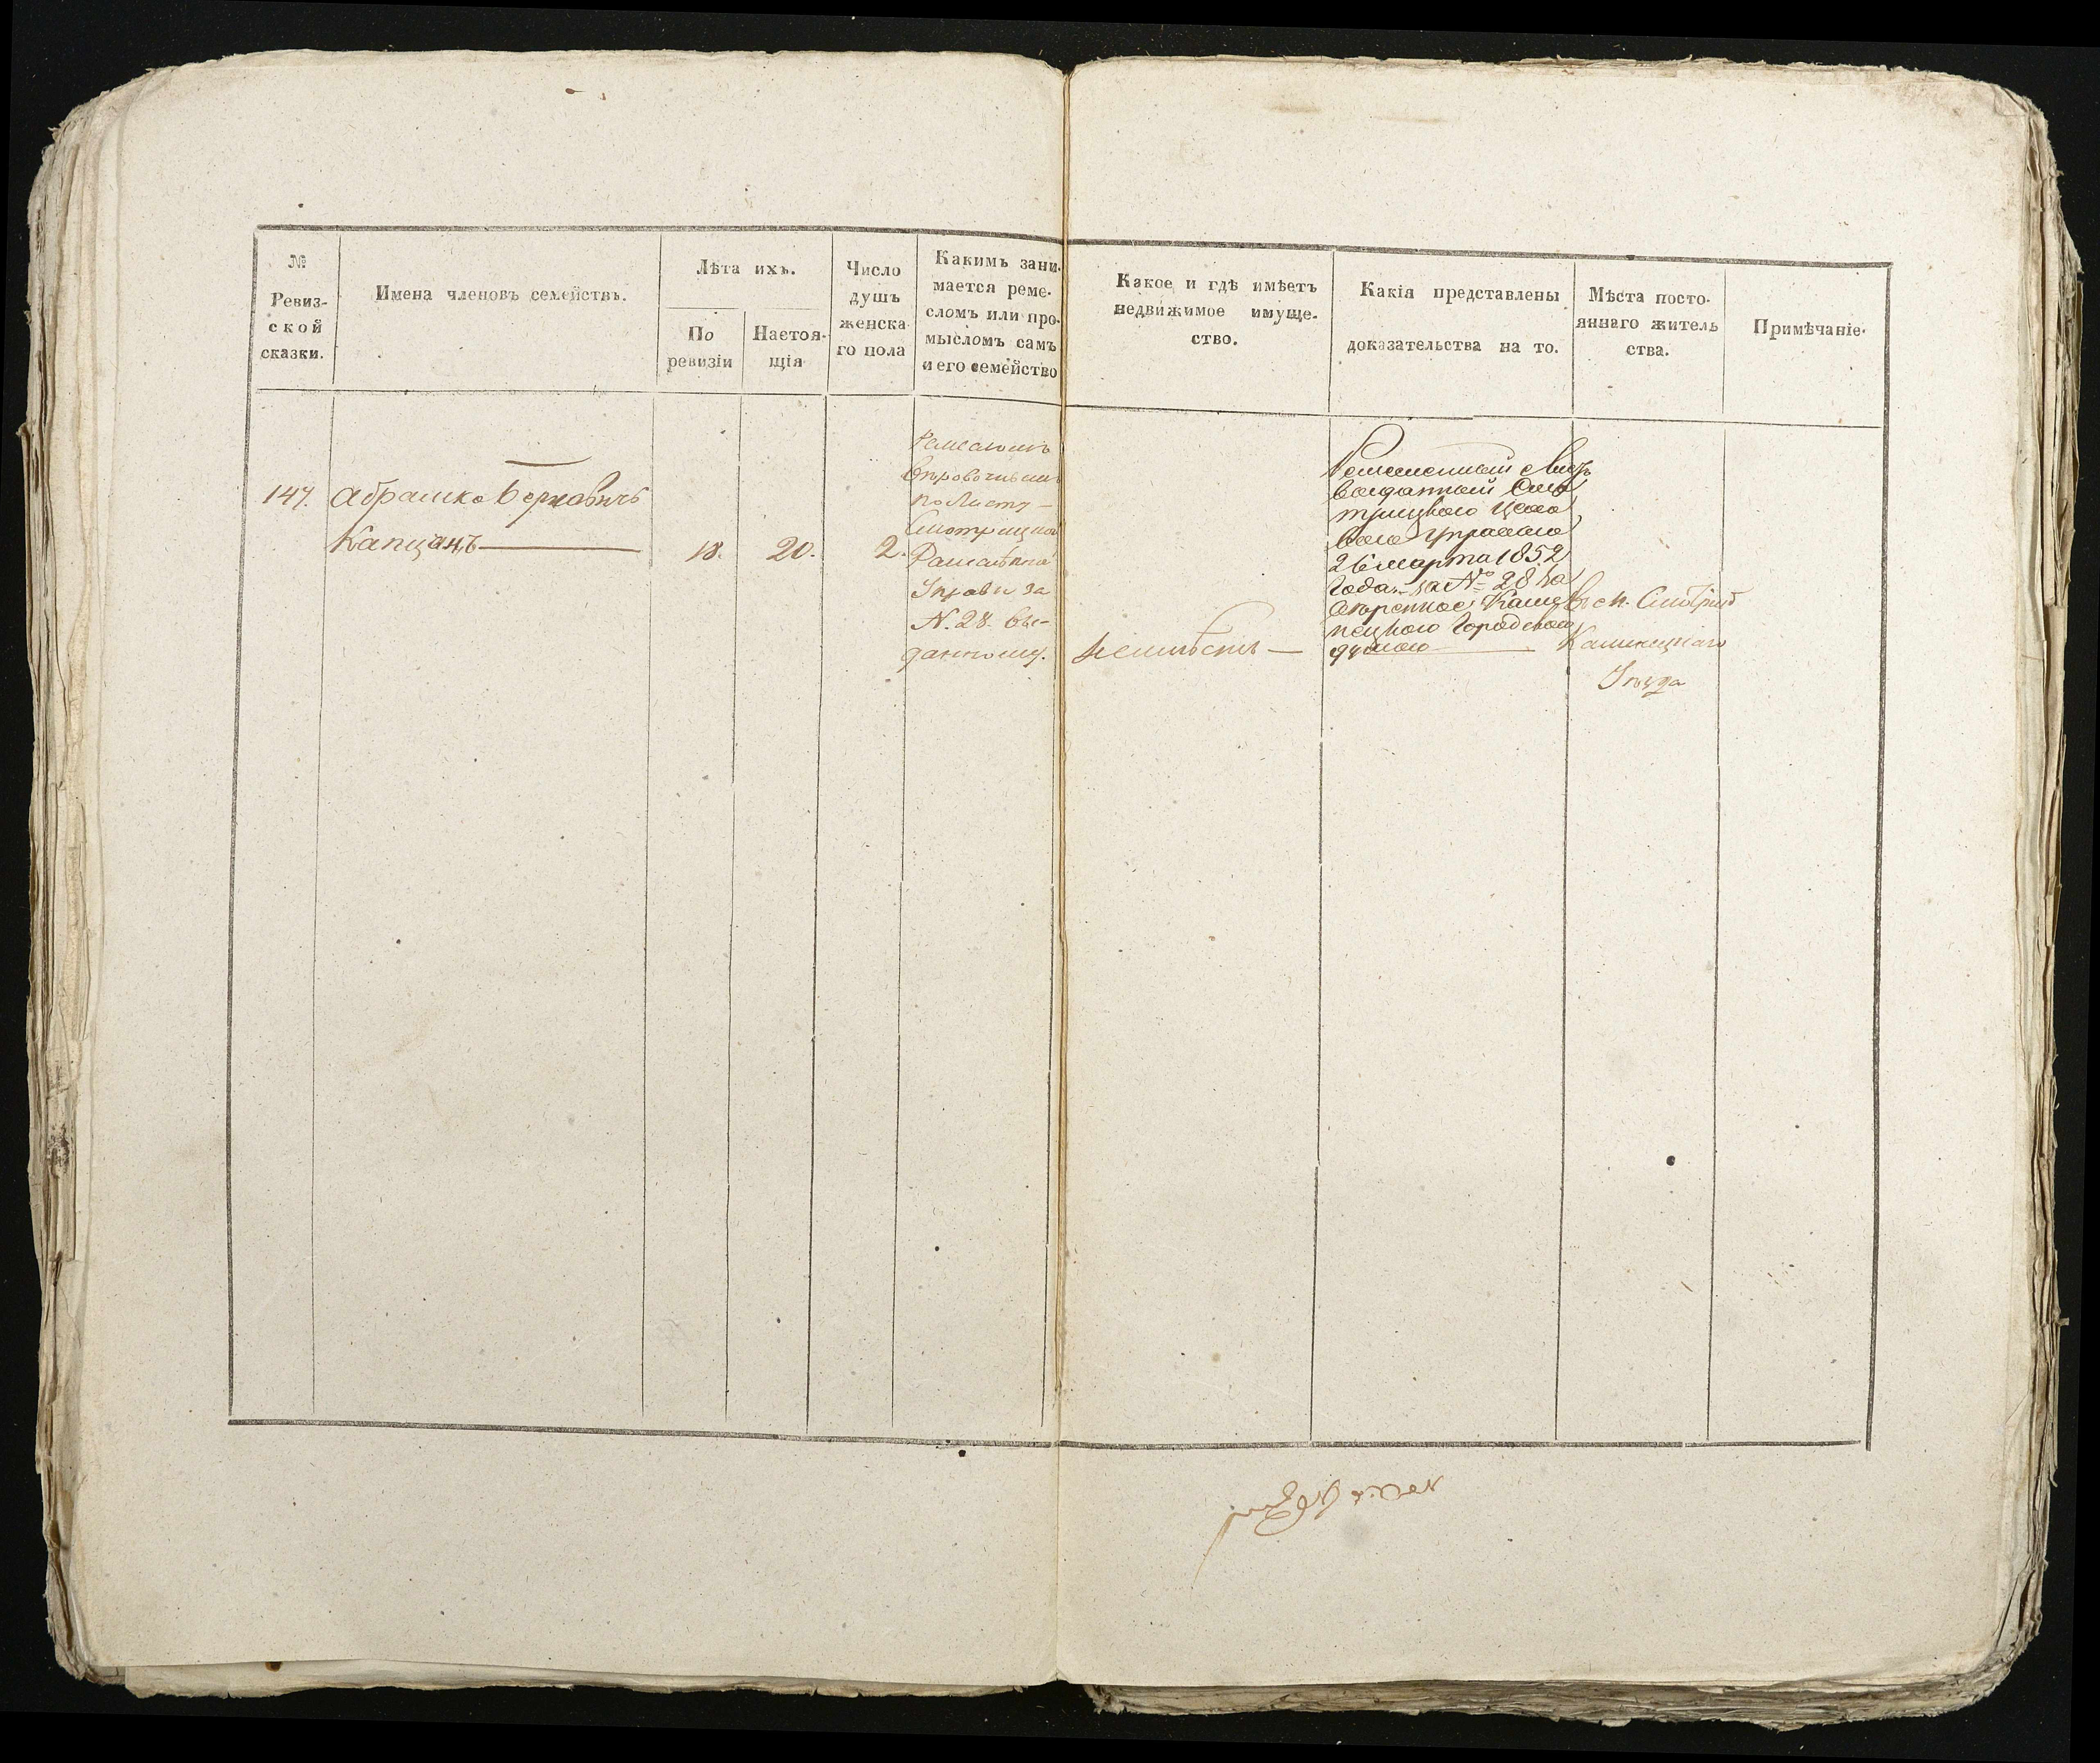 №
Ревиз-
ской
сказки.
Имена членовъ семействъ.
Лѣта ихъ.
По
ревизіи
Настоя-
щія
Число
душъ
женска
го пола
Какимъ зани-
мается реме-
сломъ или про-
мысломъ самъ
и его семейство
Какое и гдѣ имѣетъ
недвижимое имуще-
ство.
Какія представлены
доказательства на то.
Мѣста посто-
яннаго житель
ства.
Примѣчаніе.
147.
Абрашко Берковичъ
Капцанъ
18.
20.
2.
по Листу
Управи за
N. 28. вы-
данному.
неимѣетъ
выданный Смо
трицкого Цехо
26 марта 1852
года за № 28 За
Каме
нецкого Городского
думою
въ м. Смотричъ
Каменецкаго
Уезда